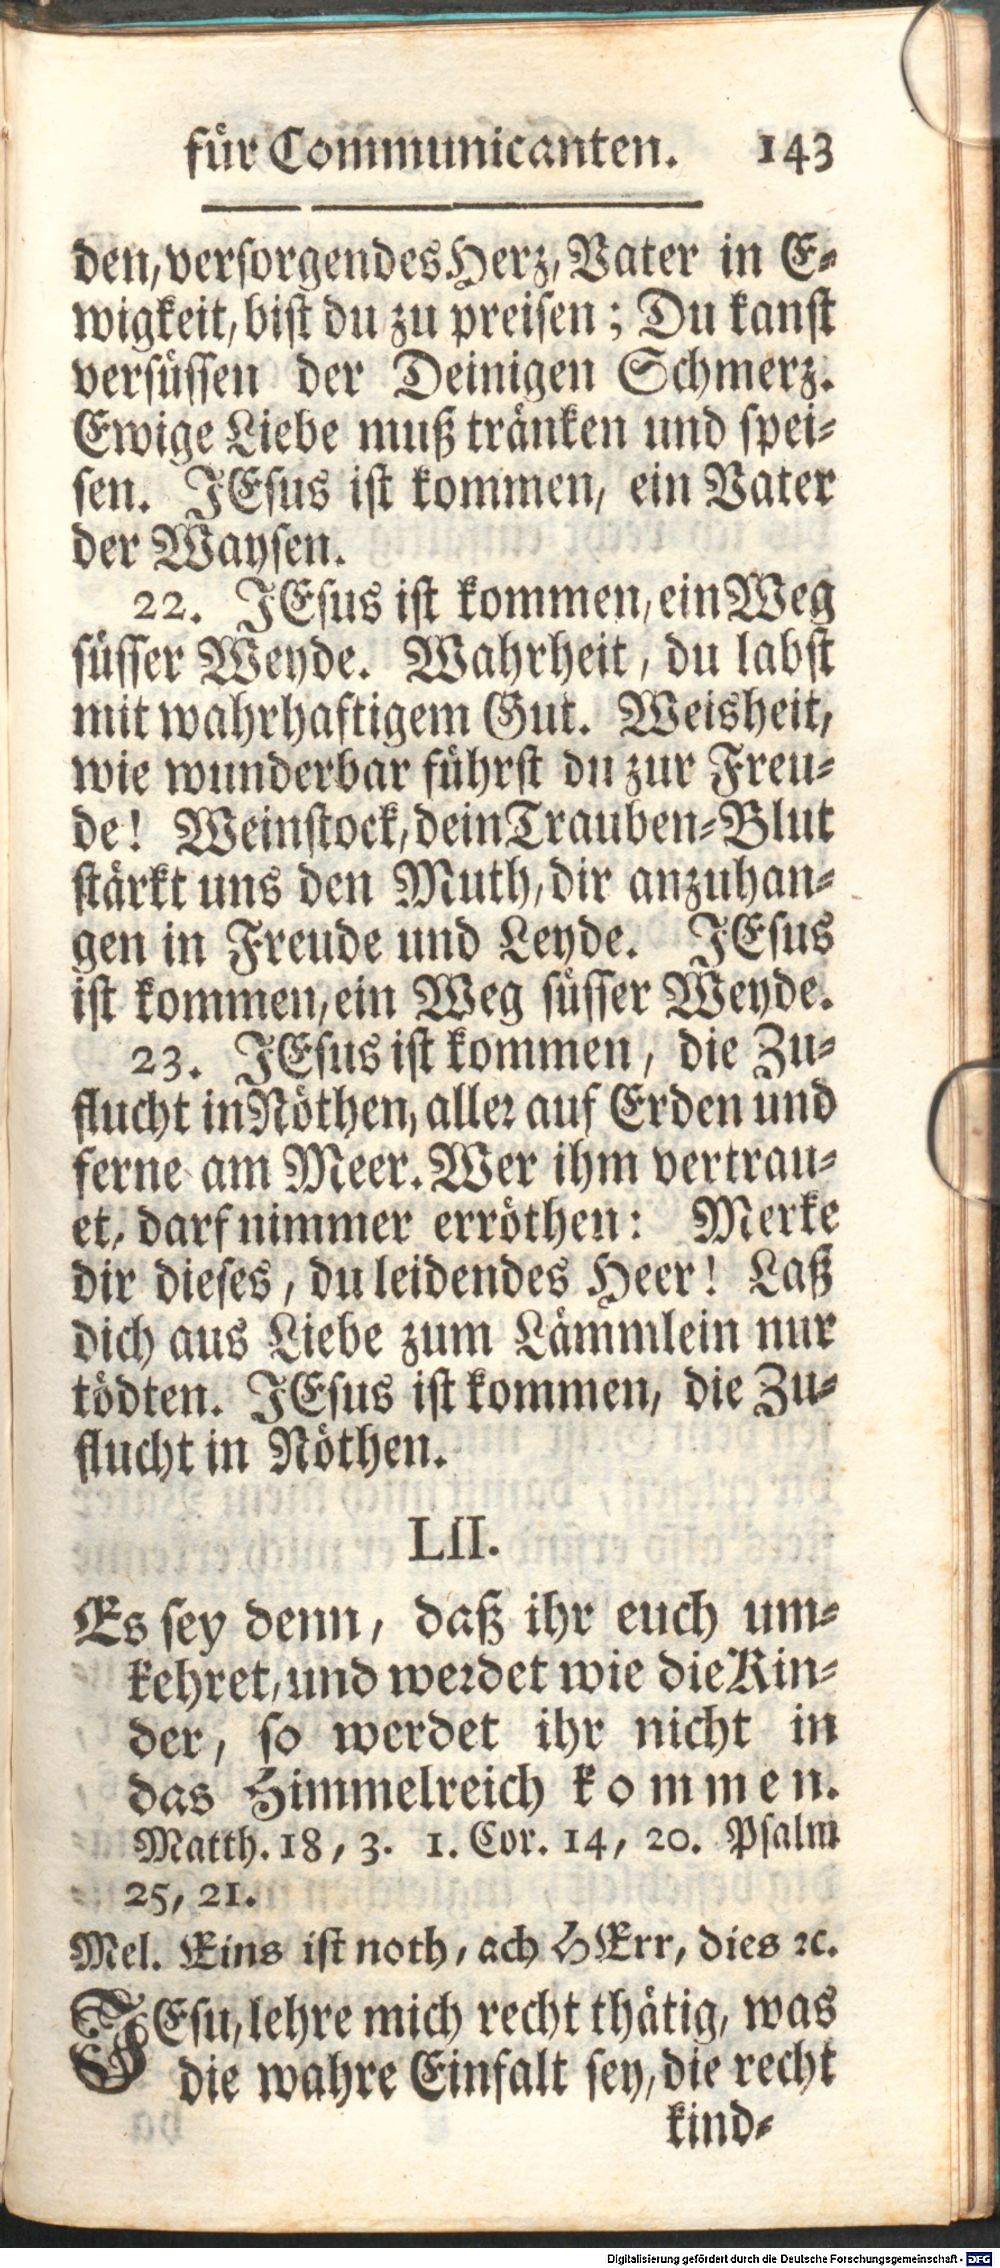 für Communicanten. 143
den, versorgendes Herz, Vater in E-
wigkeit, bist du zu preisen; Du kanst
versüssen der Deinigen Schmerz.
Ewige Liebe muß tränken und spei-
sen. JEsus ist kommen, ein Vater
der Waysen.
22. JEsus ist kommen, ein Weg
süsser Weyde. Wahrheit, du labst
mit wahrhaftigem Gut. Weisheit,
wie wunderbar führst du zur Freu-
de! Weinstock, dein Trauben-Blut
stärkt uns den Muth, dir anzuhan-
gen in Freude und Leyde. JEsus
ist kommen, ein Weg süsser Weyde.
23. JEsus ist kommen, die Zu-
flucht in Nöthen, aller auf Erden und
ferne am Meer. Wer ihm vertrau-
et, darf nimmer erröthen: Merke
dir dieses, du leidendes Heer! Laß
dich aus Liebe zum Lämmlein nur
tödten. JEsus ist kommen, die Zu-
flucht in Nöthen.
LII.
Es sey denn, daß ihr euch um-
kehret, und werdet wie die Kin-
der, so werdet ihr nicht in
das Himmelreich kommen.
Matth. 18, 3. 1. Cor. 14, 20. Psalm
25, 21.
Mel. Eins ist noth, ach HErr, dies ꝛc.
JEsu, lehre mich recht thätig, was
die wahre Einfalt sey, die recht
kind-
Digitalisierung gefördert durch die Deutsche Forschungsgemeinschaft - DFG